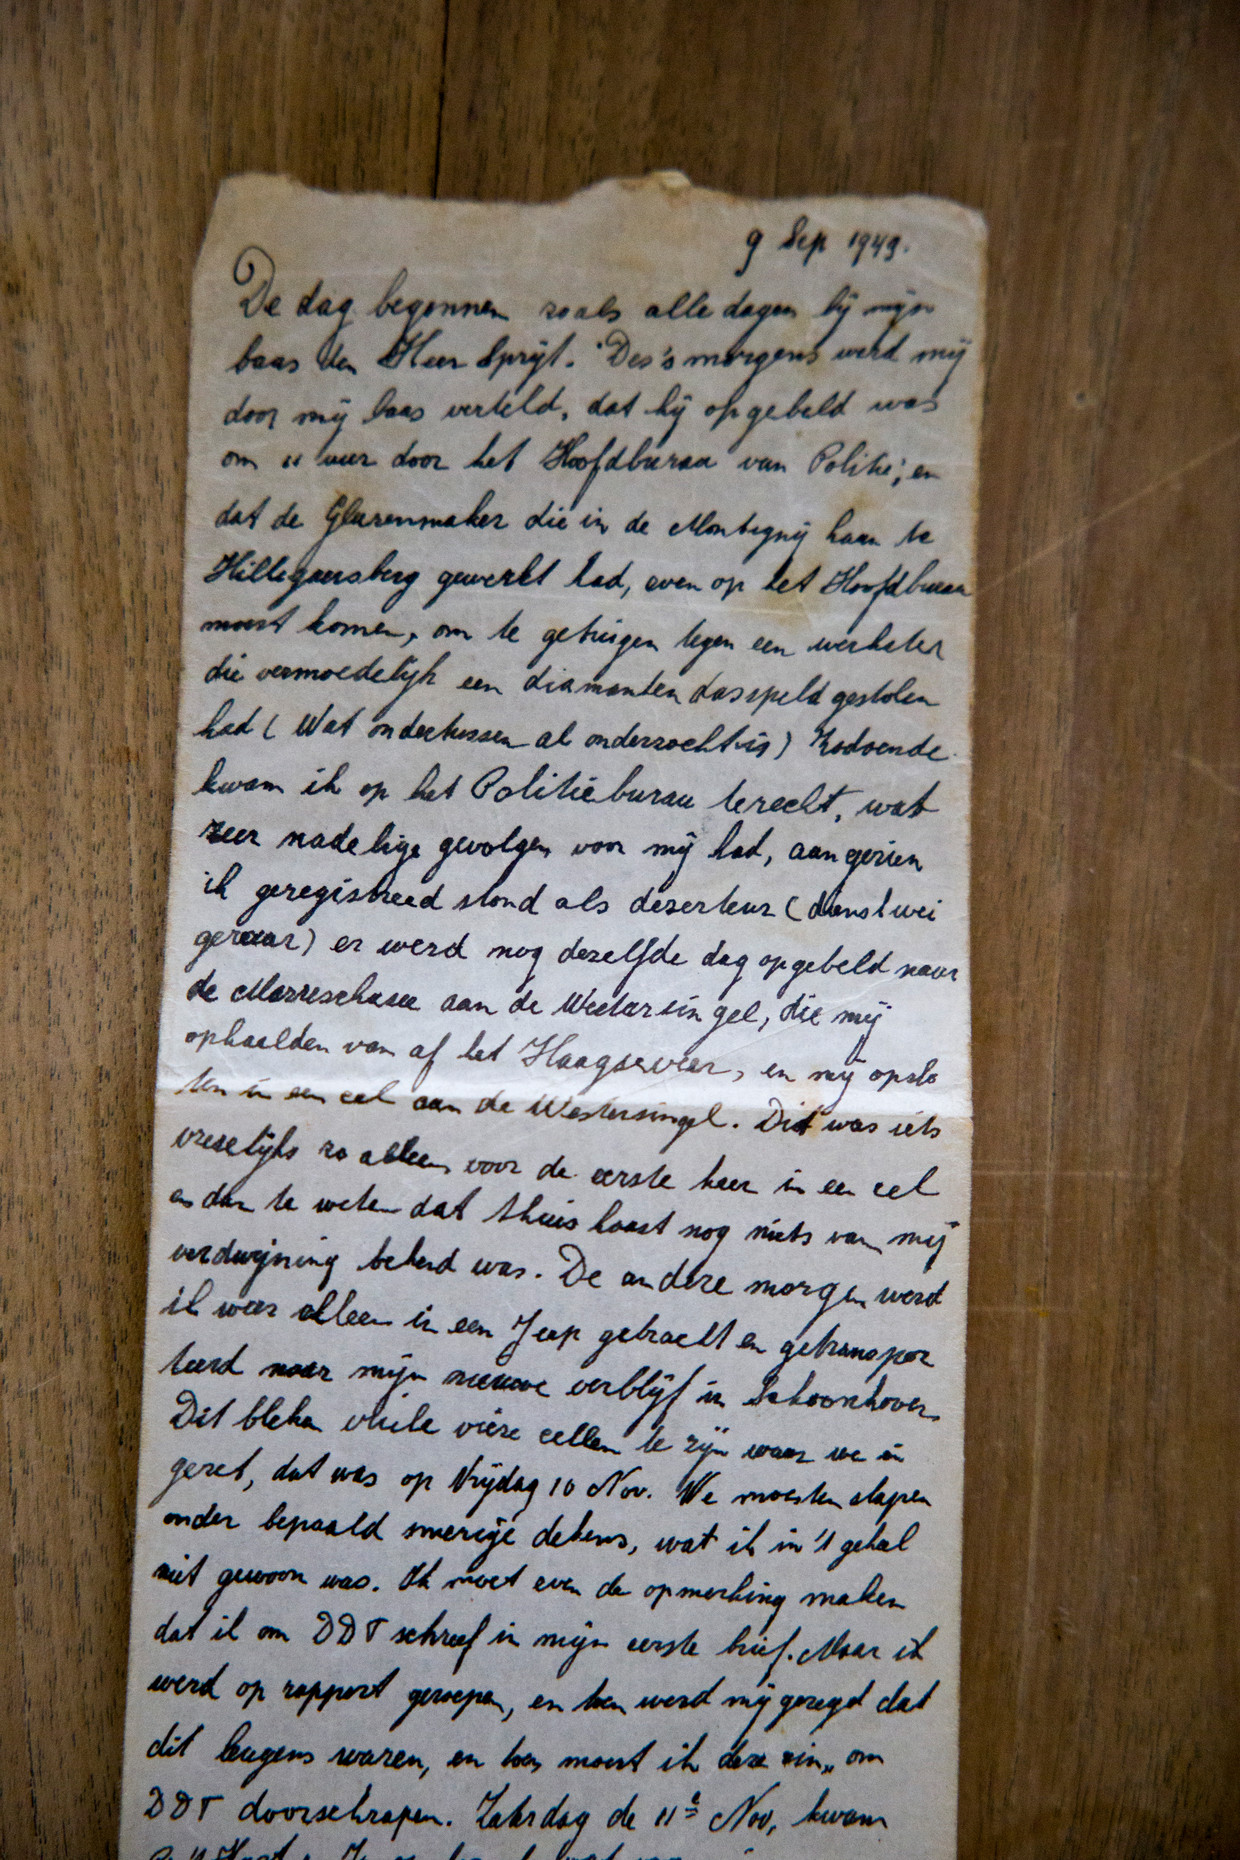 9 Sep 1949.
De dag begonnen zoals alle dagen bij mijn
baas den Heer Sprijt. Des's morgens werd mij
door mij baas verteld, dat hij opgebeld was
om 11 uur door het Hoofdbureau van Politie, en
dat de Glazenmaker die in de Montegnij laan te
Hillegaersberg gewerkt had, even op het Hoofdbureau
moest komen, om te getuigen tegen een werkster
die vermoedelijk een diamanten dasspeld gestolen
had ( Wat ondertussen al onderzocht is) Zodoende
kwam ik op het Politie bureau terecht, wat
zeer nadelige gevolgen voor mij had, aangezien
ik geregistreed stond als deserteur ( dienstwei
geraar) er werd nog dezelfde dag opgebeld naar
de Marreschasee aan de Westersingel, die mij
ophaalden van af het Haagseveer, en mij opslo
ten in een cel aan de Westersingel. Dit was iets
vreselijks zo alleen voor de eerste keer in een cel
en dan te weten dat thuis haast nog niets van mij
verdwijning bekend was. De andere morgen werd
ik weer alleen in een Jeep gebracht en getranspor
teerd naar mijn nieuwe verblijf in Schoonhoven.
Dit bleken vieze cellen te zijn waar we in
gezet, dat was op Vrijdag 10 Nov. We moesten slapen
onder bepaald smerige dekens, wat ik in 't geheel
niet gewoon was. Ik moet even de opmerking maken
dat ik om DDT schreef in mijn eerste brief. Maar ik
werd op rapport geroepen, en toen werd mij gezegd dat
dit leugens waren, en toen moest ik deze zin „ om
DDT doorschrapen. Zaterdag de 11e Nov, kwam